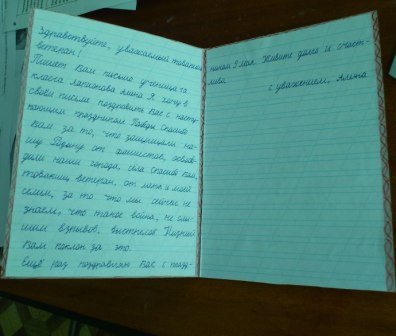 Здравствуйте, уважаемый товарищ
ветеран!
Пишет Вам письмо ученица 7а
класса Ларионова Алина. Я хочу в
своём письме поздравить Вас с насту-
пающим праздником Победы. Спасибо
Вам за то, что защищали на-
шу Родину от фашистов, освобо-
дили наши города, сёла. Спасибо Вам,
товарищ ветеран, от меня и моей
семьи, за то что мы сейчас не
знаем, что такое война, не слы-
шим взрывов, выстрелов. Низкий
Вам поклон за это.
Ещё раз поздравляю Вас с празд-
ником 9 мая. Живите долго и счаст-
ливо.
с уважением, Алина